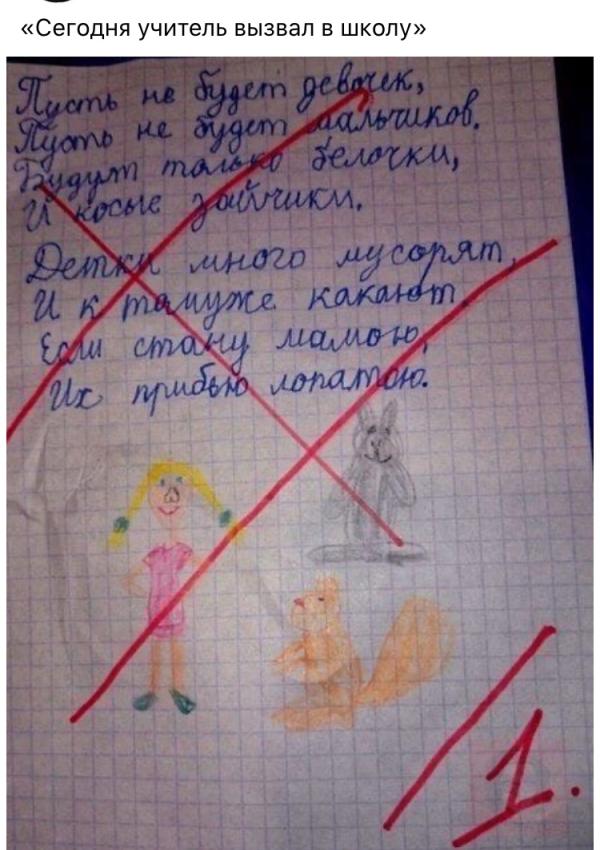 «Сегодня учитель вызвал в школу»
Пусть не будет девочек,
Пусть не будет мальчиков.
Будут только белочки,
И косые зайчики.
Детки много мусорят,
И к томуже какают.
Если стану мамою,
Их прибью лопатою.
1.